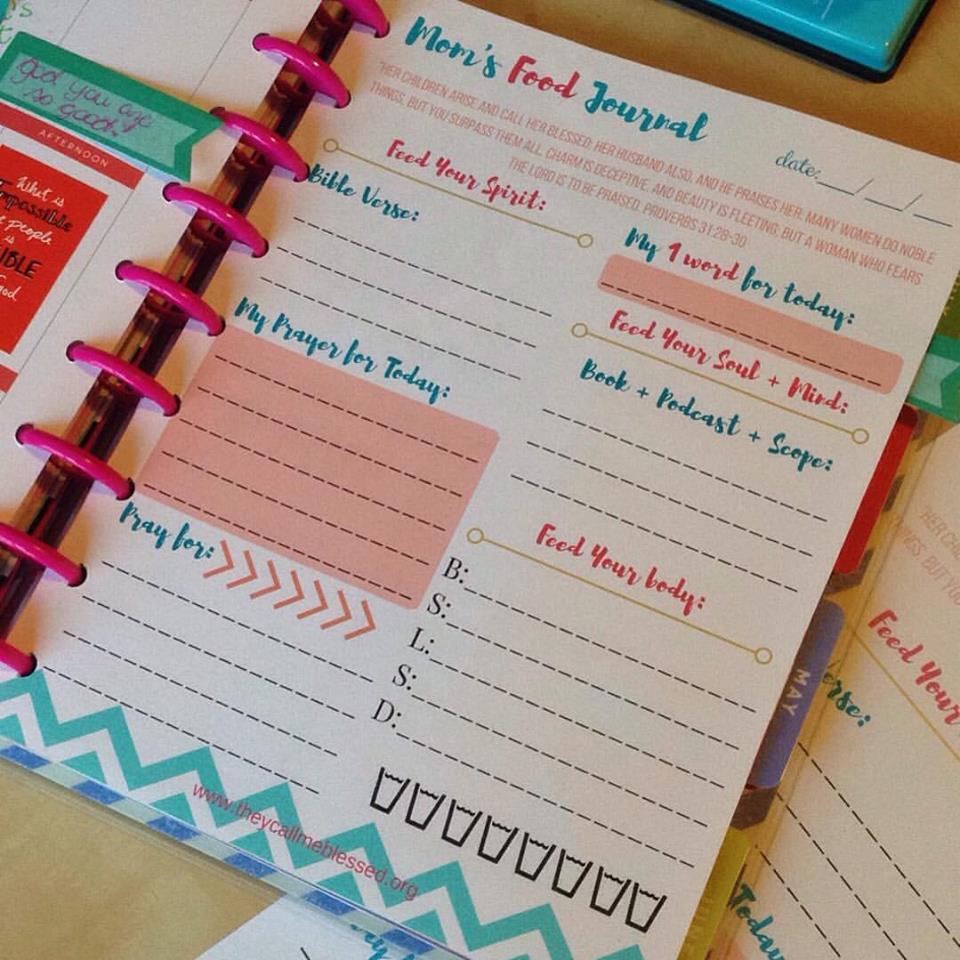 god you are
so good.
AFTERNOON
What is
impossible
people
is
IBLE
God
Mom's Food Journal
date:__/__/__
"HER CHILDREN ARISE AND CALL HER BLESSED; HER HUSBAND ALSO, AND HE PRAISES HER: MANY WOMEN DO NOBLE
THINGS, BUT YOU SUPPASS THEM ALL. CHARM IS DECEPTIVE, AND BEAUTY IS FLEETING; BUT A WOMAN WHO FEARS
THE LORD IS TO BE PRAISED. PRUVERBS 31:28-30
Feed Your Spirit:
Bible Verse:
My Prayer for Today:
Pray for:
My 1 word for today:
Feed Your Soul + Mind:
Book + Podcast + Scope:
Feed Your body:
B:
S:
L:
S:
D:
www.theycallmeblessed.org
MAY
"HER
THINGS, BUT YOU
Feed Your
erse:
Today